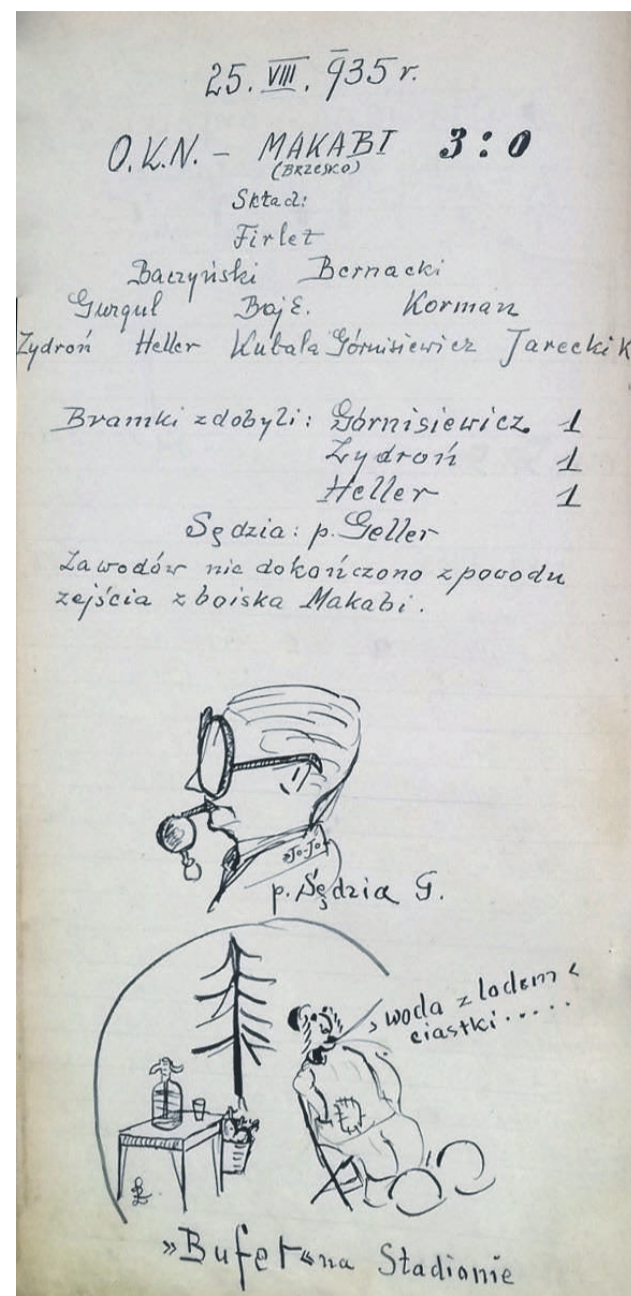 25. VIII. 935 r.
O.K.N. - MAKABI 3:0
(BRZESKO)
Skład:
Firlet
Baczyński Bernacki
Gurgul Boj E. Korman
Zydroń Heller Kubala Górnisiewicz Jarecki K
Bramki zdobyli: Górnisiewicz 1
Zydroń 1
Heller 1
Sędzia: p. Geller
Zawodów nie dokończono z powodu
zejścia z boiska Makabi.
»Jo-Jo«
p. Sędzia G.
woda z lodem
ciastki.....
»Bufet« na Stadionie